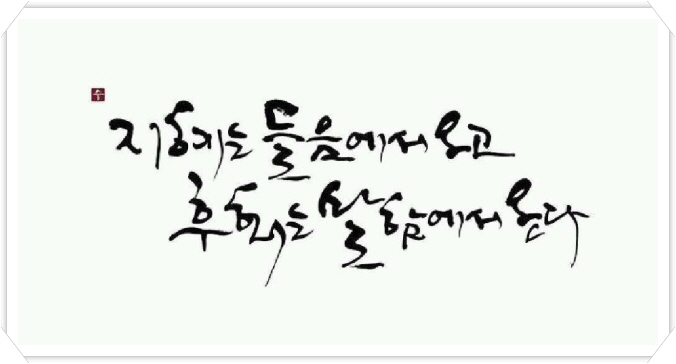 수
지혜는 들음에서 오고
후회는 말함에서 온다